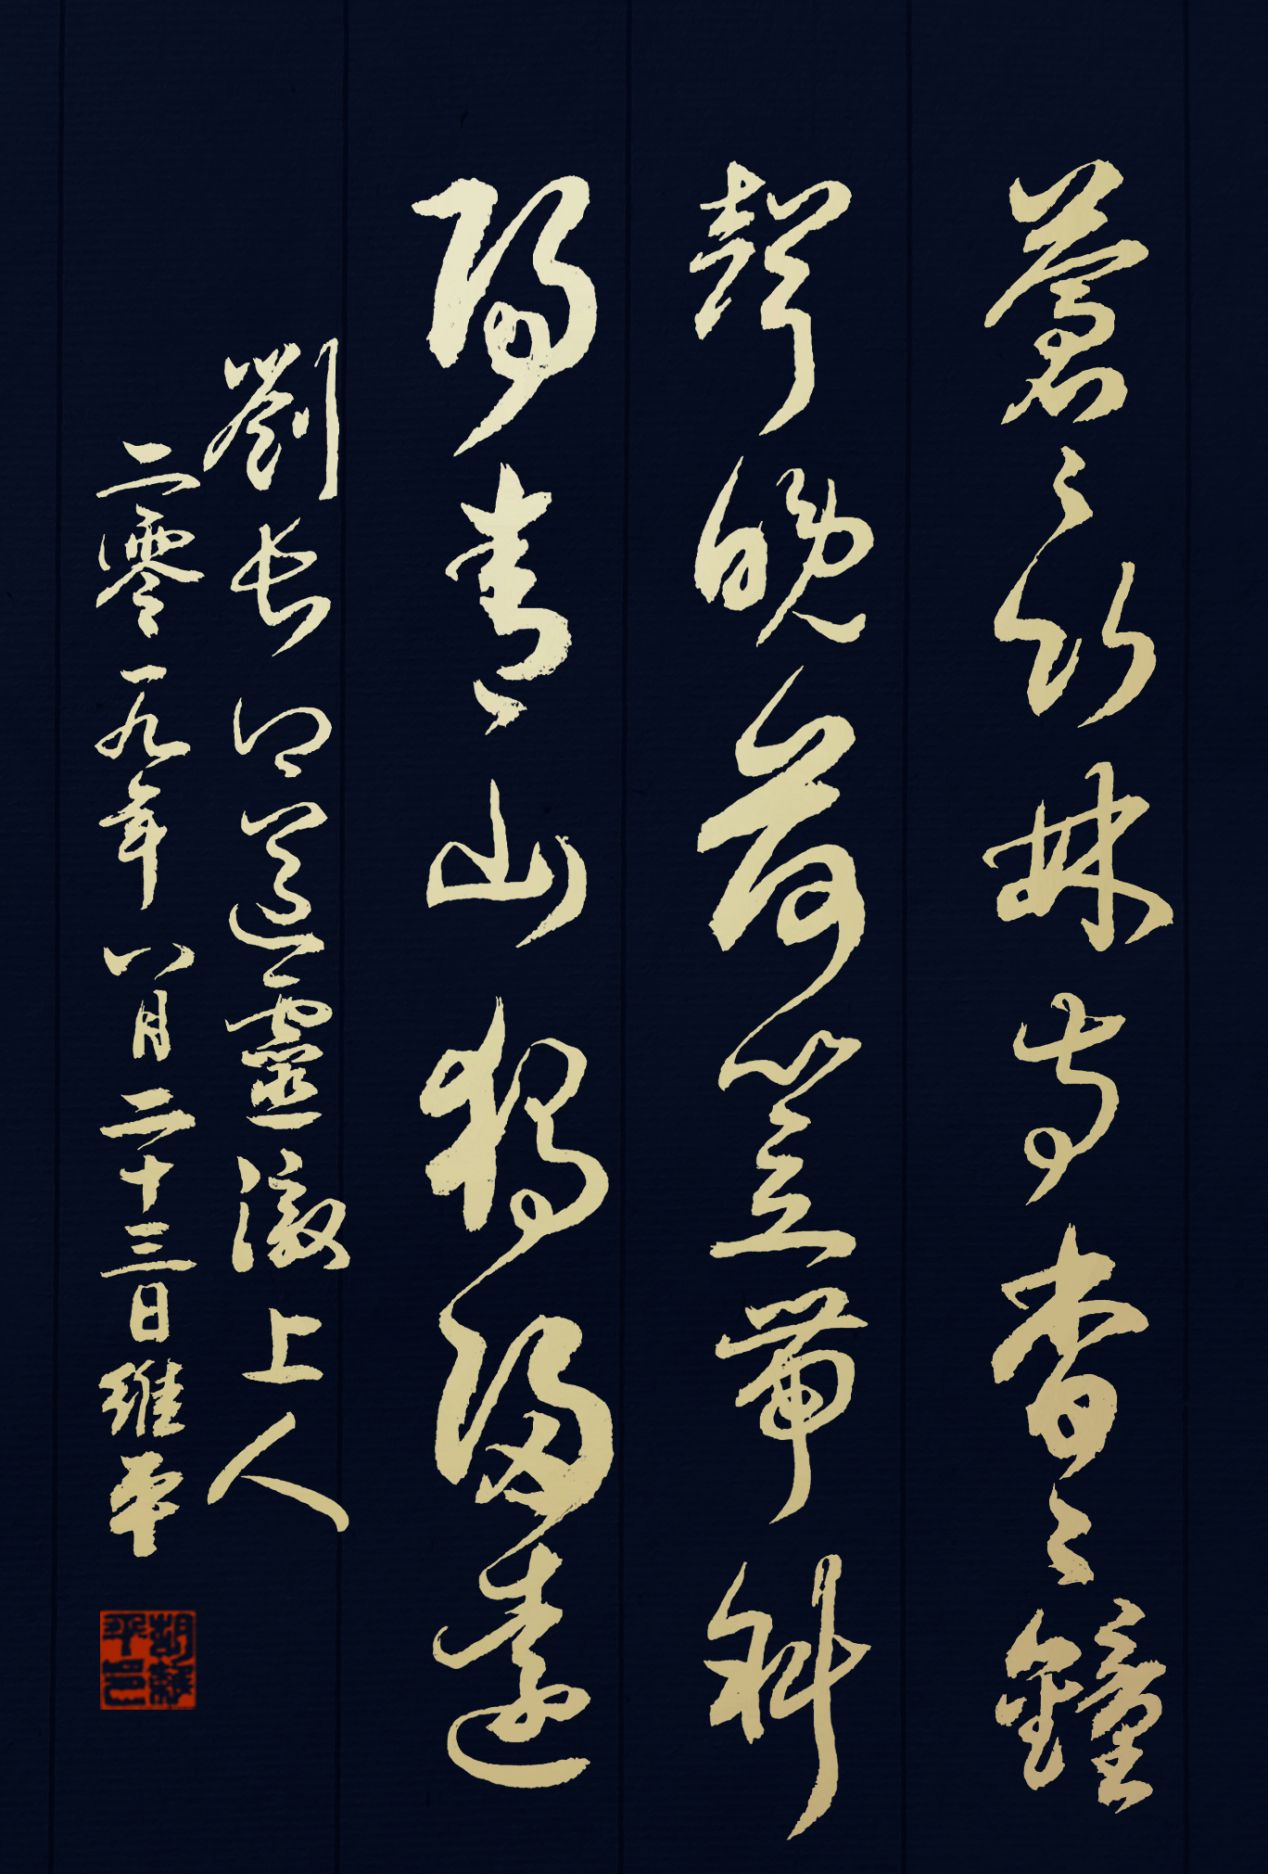 蒼〻竹林寺杳〻鐘
聲晚荷笠帶斜
陽青山獨歸遠
劉長卿送靈澈上人
二零一九年八月二十三日維平
胡維平印